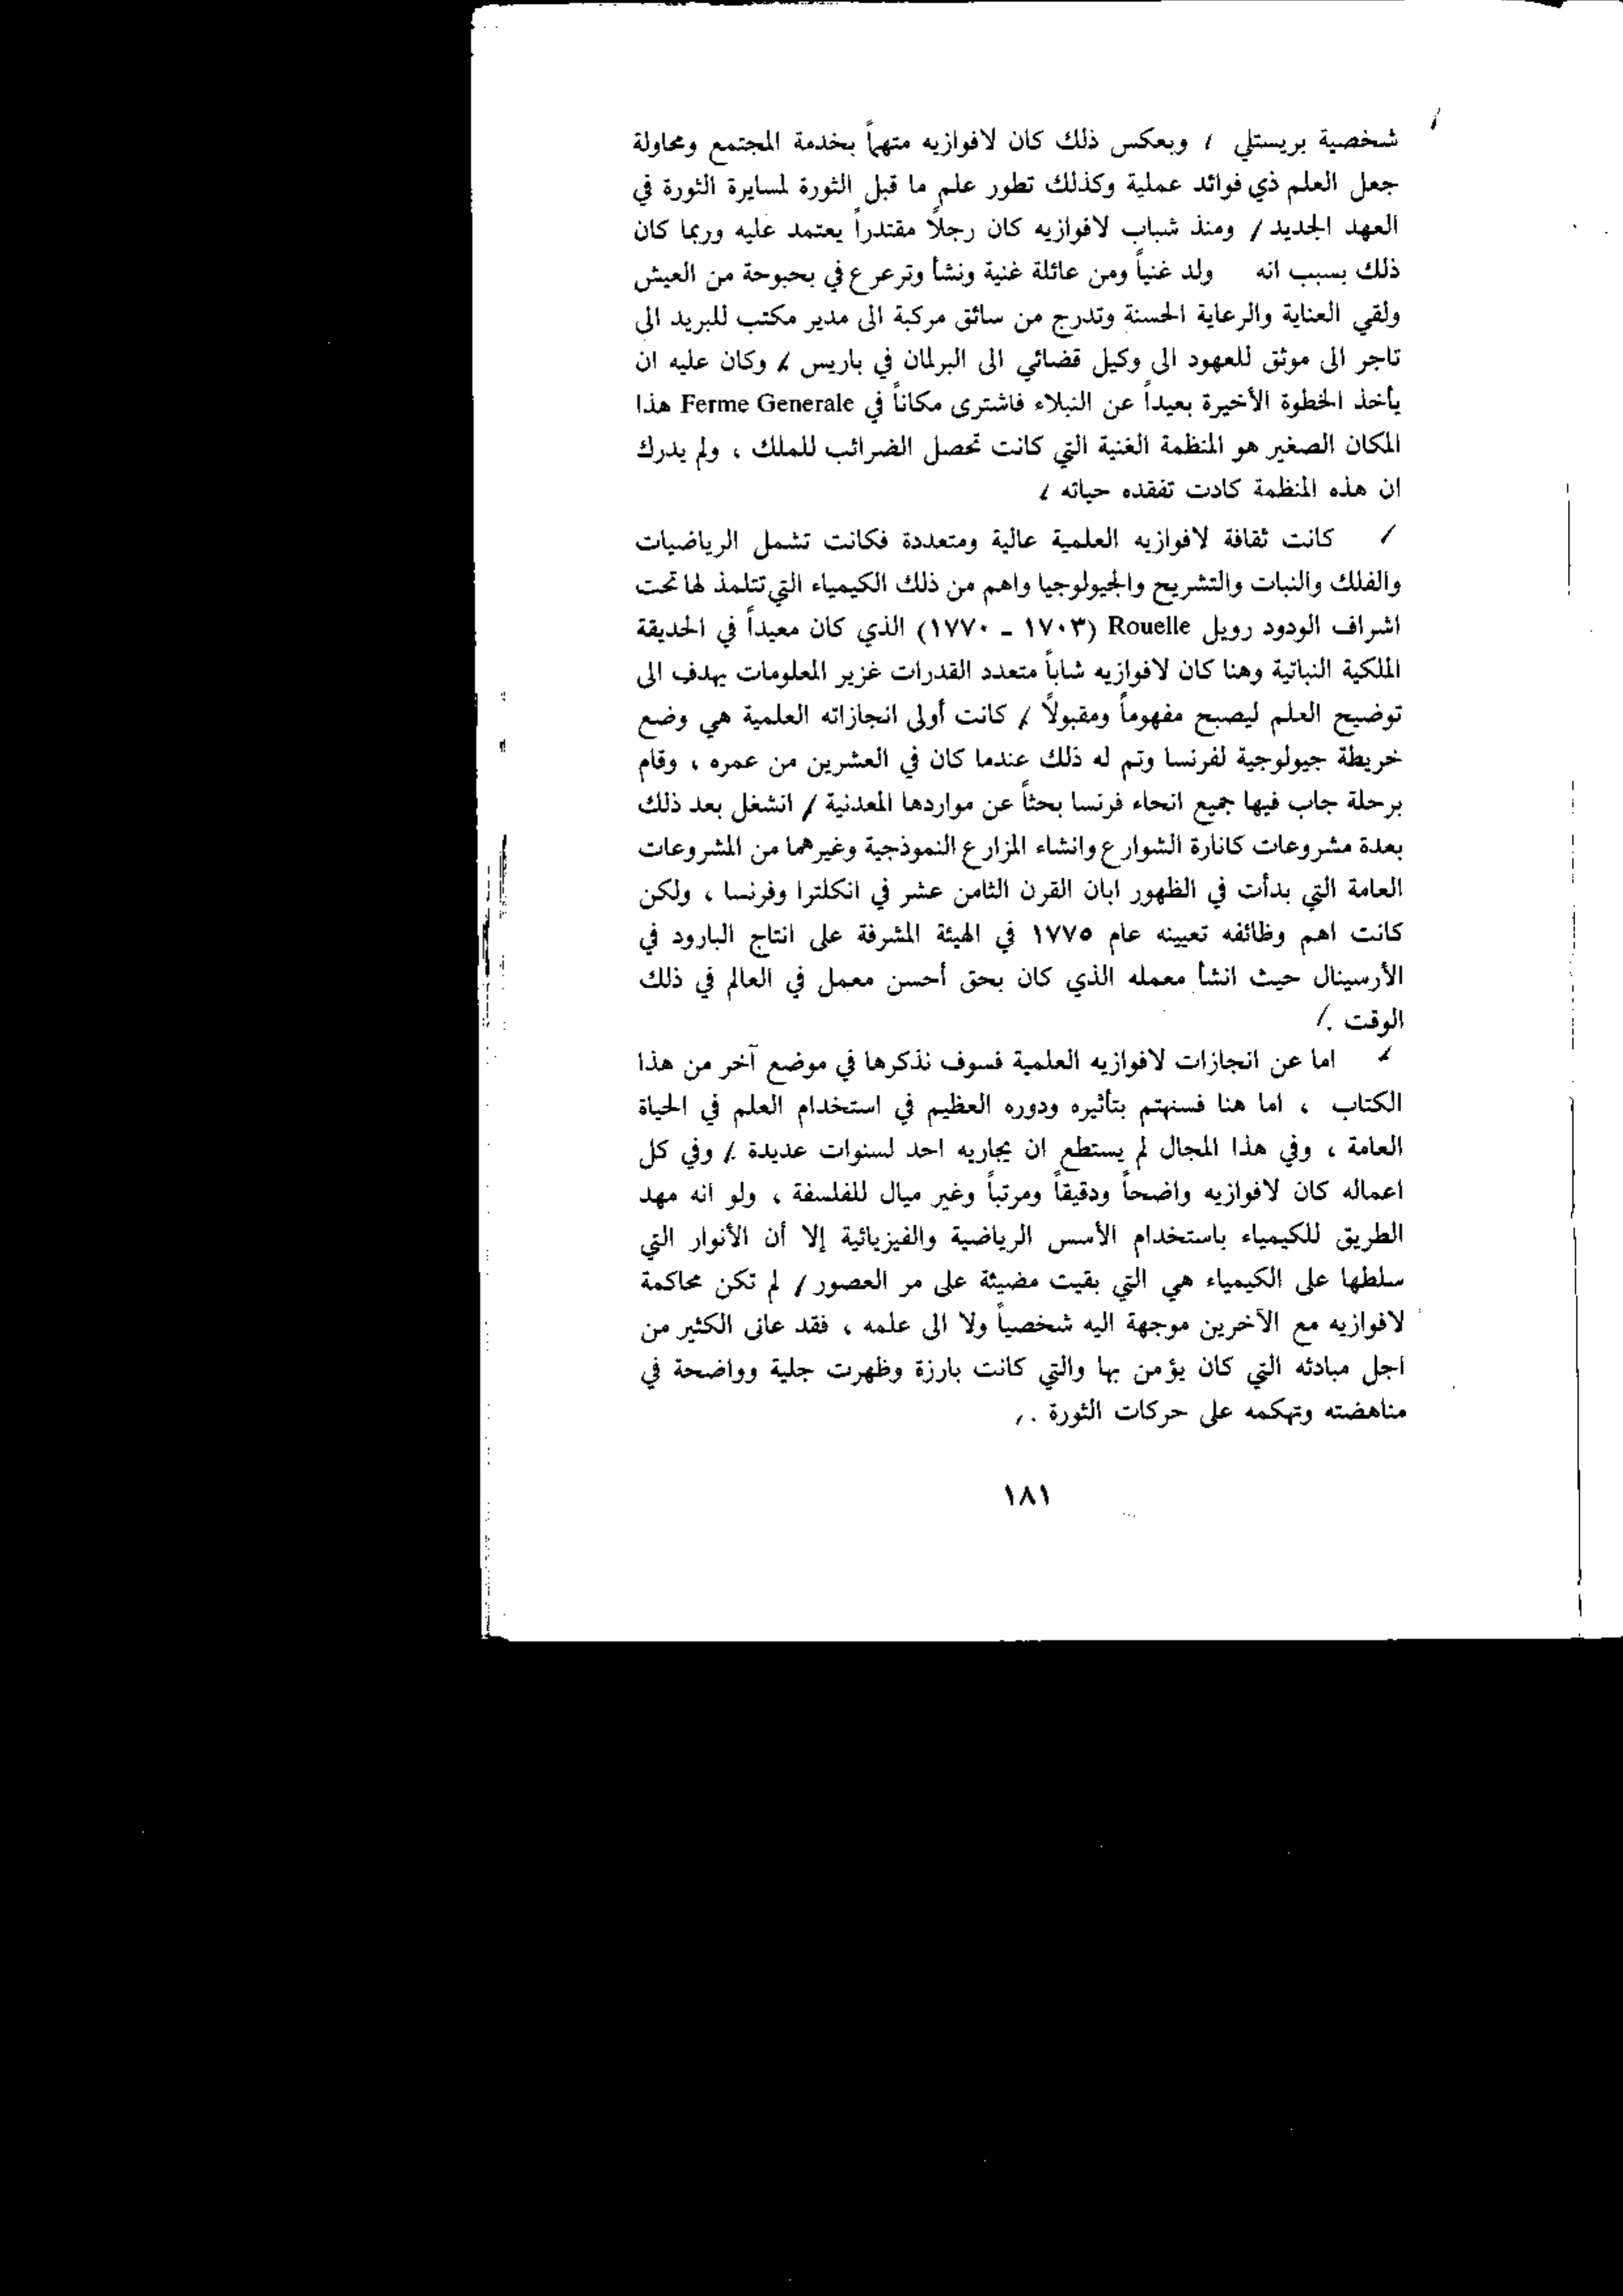 شخصية بريستلي / وبعكس ذلك كان لافوازيه متهماً بخدمة المجتمع ومحاولة
جعل العلم ذي فوائد عملية وكذلك تطور علم ما قبل الثورة لمسايرة الثورة في
العهد الجديد / ومنذ شباب لافوازيه كان رجلاً مقتدراً يعتمد عليه وربما كان
ذلك بسبب انه ولد غنياً ومن عائلة غنية ونشأ وترعرع في بحبوحة من العيش
ولقي العناية والرعاية الحسنة وتدرج من سائق مركبة الى مدير مكتب للبريد الى
تاجر الى موثق للعهود الى وكيل قضائي الى البرلمان في باريس / وكان عليه ان
يأخذ الخطوة الأخيرة بعيداً عن النبلاء فاشترى مكاناً في Ferme Generale هذا
المكان الصغير هو المنظمة الغنية التي كانت تحصل الضرائب للملك ، ولم يدرك
ان هذه المنظمة كادت تفقده حياته /
/ كانت ثقافة لافوازيه العلمية عالية ومتعددة فكانت تشمل الرياضيات
والفلك والنبات والتشريح والجيولوجيا واهم من ذلك الكيمياء التي تتلمذ لها تحت
اشراف الودود رويل Rouelle (١٧٠٣ - ١٧٧٠) الذي كان معيداً في الحديقة
الملكية النباتية وهنا كان لافوازيه شاباً متعدد القدرات غزير المعلومات يهدف الى
توضيح العلم ليصبح مفهوماً ومقبولاً / كانت أولى انجازاته العلمية هي وضع
خريطة جيولوجية لفرنسا وتم له ذلك عندما كان في العشرين من عمره ، وقام
برحلة جاب فيها جميع انحاء فرنسا بحثاً عن مواردها المعدنية / انشغل بعد ذلك
بعدة مشروعات كانارة الشوارع وانشاء المزارع النموذجية وغيرهما من المشروعات
العامة التي بدأت في الظهور ابان القرن الثامن عشر في انكلترا وفرنسا ، ولكن
كانت اهم وظائفه تعيينه عام ١٧٧٥ في الهيئة المشرفة على انتاج البارود في
الأرسينال حيث انشأ معمله الذي كان بحق أحسن معمل في العالم في ذلك
الوقت ./
/ اما عن انجازات لافوازيه العلمية فسوف نذكرها في موضع آخر من هذا
الكتاب ، اما هنا فسنهتم بتأثيره ودوره العظيم في استخدام العلم في الحياة
العامة ، وفي هذا المجال لم يستطع ان يجاريه احد لسنوات عديدة / وفي كل
اعماله كان لافوازيه واضحاً ودقيقاً ومرتباً وغير ميال للفلسفة ، ولو انه مهد
الطريق للكيمياء باستخدام الأسس الرياضية والفيزيائية إلا أن الأنوار التي
سلطها على الكيمياء هي التي بقيت مضيئة على مر العصور / لم تكن محاكمة
لافوازيه مع الآخرين موجهة اليه شخصياً ولا الى علمه ، فقد عانى الكثير من
اجل مبادئه التي كان يؤمن بها والتي كانت بارزة وظهرت جلية وواضحة في
مناهضته وتهكمه على حركات الثورة .
١٨١